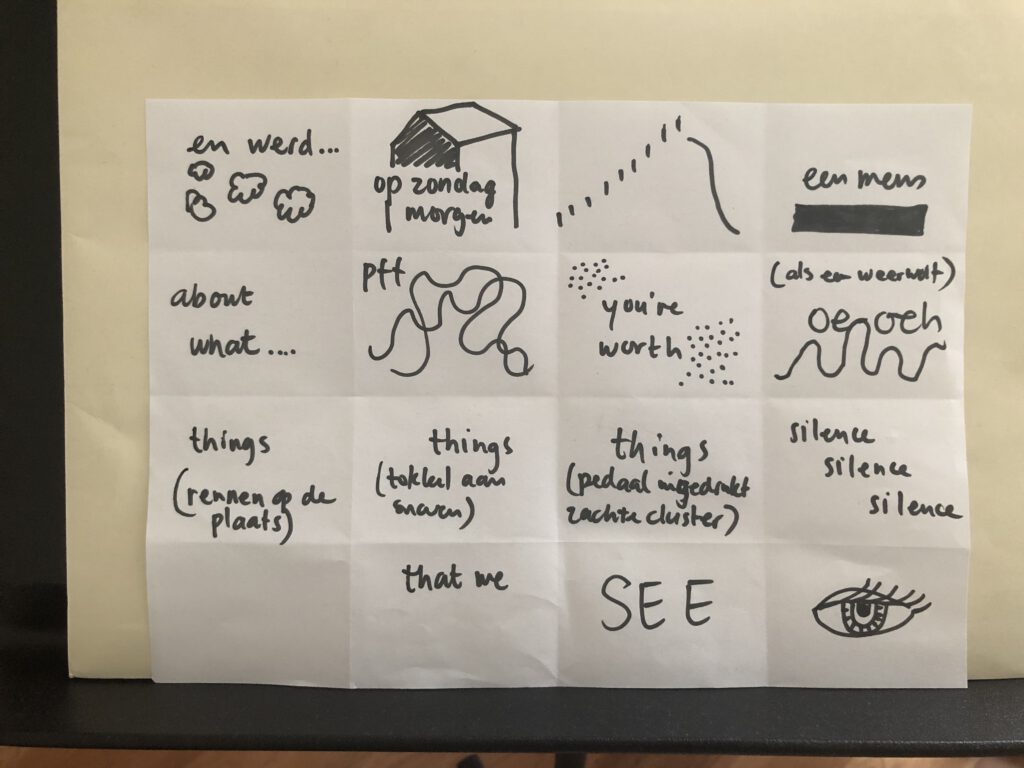 en werd...
op zondag
morgen
een mens
about
what ....
pff
you're
worth
(als een weerwolf)
oe oeh
things
(rennen op de
plaats)
things
(tokkel aan
snaren)
things
(pedaal ingedrukt
zachte cluster)
silence
silence
silence
that we
SEE